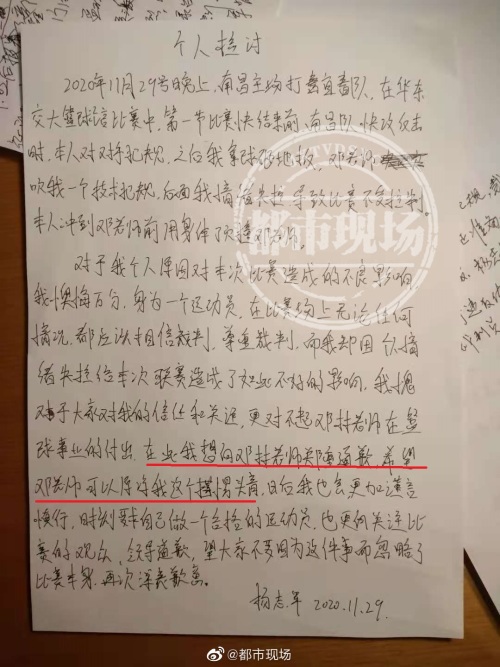 个人检讨
2020年11月29号晚上,南昌主场打宜春队,在华东
交大篮球馆比赛中,第一节比赛快结束前,南昌队快攻反击
时,本人对对手犯规,之后我拿球砸地板,邓老师
吹我一个技术犯规,后面我情绪失控,导致比赛不服裁判。
本人冲到邓老师前用身体顶撞邓老师。
对于我个人原因对本次比赛造成的不良影响
我懊悔万分,身为一个运动员,在比赛场上无论任何
情况,都应该相信裁判,尊重裁判,而我却因个人情
绪失控给本次联赛造成了如此不好的影响,我愧
对于大家对我的信任和关注,更对不起邓老师在篮
球事业的付出,在此我想向邓老师关陆道歉,希望
邓老师可以原谅我这个愣头青,日后我也会更加谨言
慎行,时刻要求自己做一个合格的运动员,也要向关注比
赛的观众,领导道歉,望大家不要因为这件事而忽略了
比赛本身,再次深表歉意。
杨志军 2020.11.29.
都市现场
@都市现场